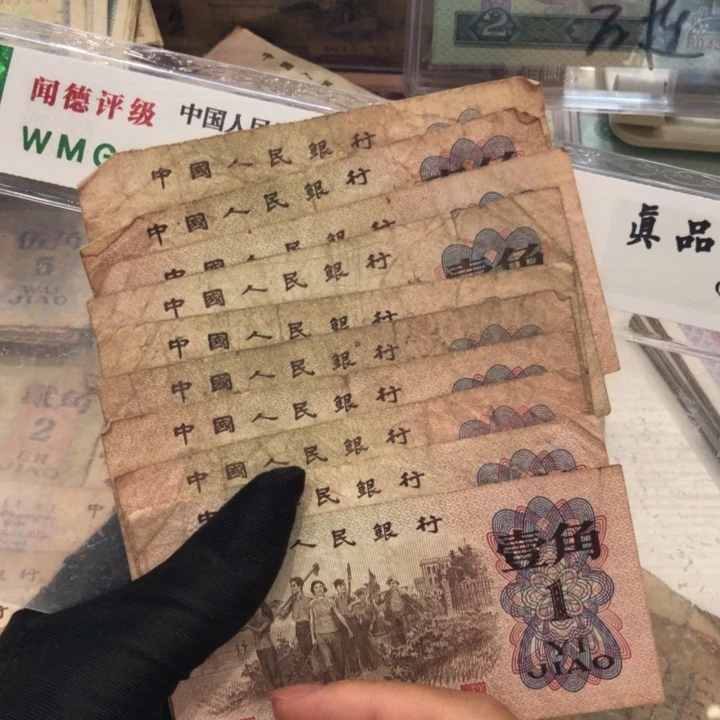 WU YI
2
闻德评级 中国人民
WMG
中國人民銀行
中國人民銀行
中國人民銀行
中國人民銀行
壹角
中國人民銀行
中國人民銀行
中國人民銀行
中國人民銀行
民銀行
人民銀行
壹角
1
YI
JIAO
真品
伍角
5
WU
JIAO
贰角
2
ER
JIAO